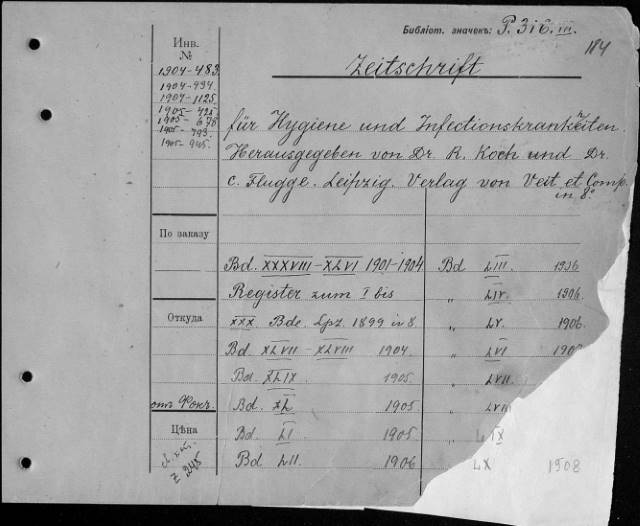 Библіот. значекъ: P. 316. III.
184
Инв.
№
1904-483.
1904-494
1904-1125
1905-422
1905-675
1905-793.
1905-945.
Zeitschrift
für Hygiene und Infectionskrankheiten.
Herausgegeben von Dr. R. Koch und Dr.
C. Flügge. Leipzig. Verlag von Veit et Comp.
in 8°
По заказу
Bd. XXXVIII-XLVI 1901-1904 Bd LIII. 1906
Register zum I bis " LIV. 1906.
Откуда
XXX. Bde. Lpz. 1899 in 8. " LV. 1906.
Bd XLVII - XLVIII 1904. " LVI
Bd. XLIX 1905. " LVII.
отъ Фокк. Bd. XL 1905 " LVIII
Цѣна
Bd. LI. 1905. " LIX
Bd LII. 1906 " LX 1908
№ 245